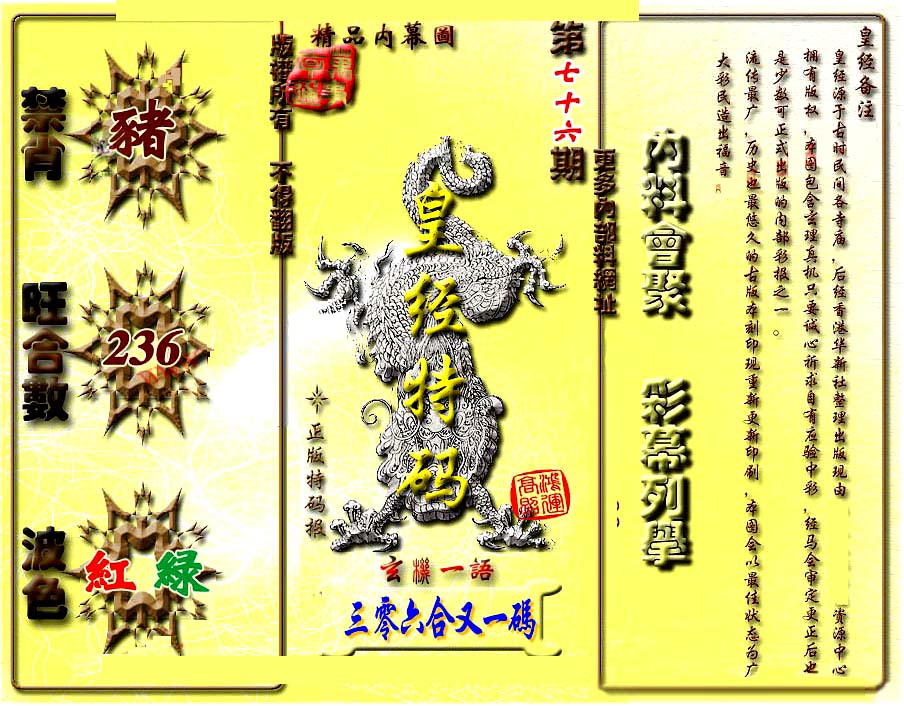 皇经备注
皇经源于古时民间各寺庙，后经香港华新社整理出版现由 资源中心
拥有版权，本图包含玄理真机只要诚心祈求自有应验中彩，经马会审定更正后也
是少数可正式出版的内部彩报之一。
流传最广，历史也最悠久的古版本刻印现重新更新印刷，本图会以最佳状态为广
大彩民造出福音
內料會聚 彩幕列舉
更多內部料網址
第七十六期
精品內幕圖
皇经特码
正版特码报
鴻運高照
玄機一語
三零六合又一碼
版權所有 不得翻版
禁肖
豬
旺合數
236
波色
紅 綠